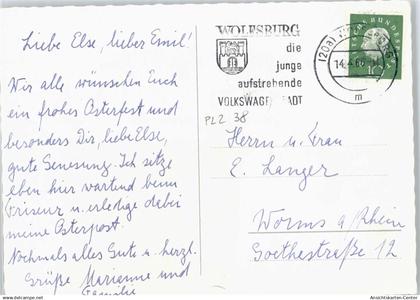 Liebe Else, lieber Emil!
Wir alle wünschen Euch
ein frohes Osterfest und
besonders Dir, liebe Else,
gute Genesung. Ich sitze
eben hier wartend beim
Friseur u. erledige dabei
meine Osterpost.
Nochmals alles Gute u. herzl.
Grüße Marianne und
Familie
WOLFSBURG
die
junge
aufstrebende
VOLKSWAGENSTADT
(20a) WOLFSBURG
14.4.60
m
10
PLZ 38
Herrn u. Frau
E. Langer
Worms a/Rhein
Goethestraße 12
www.delcampe.net
Ansichtskarten-Center